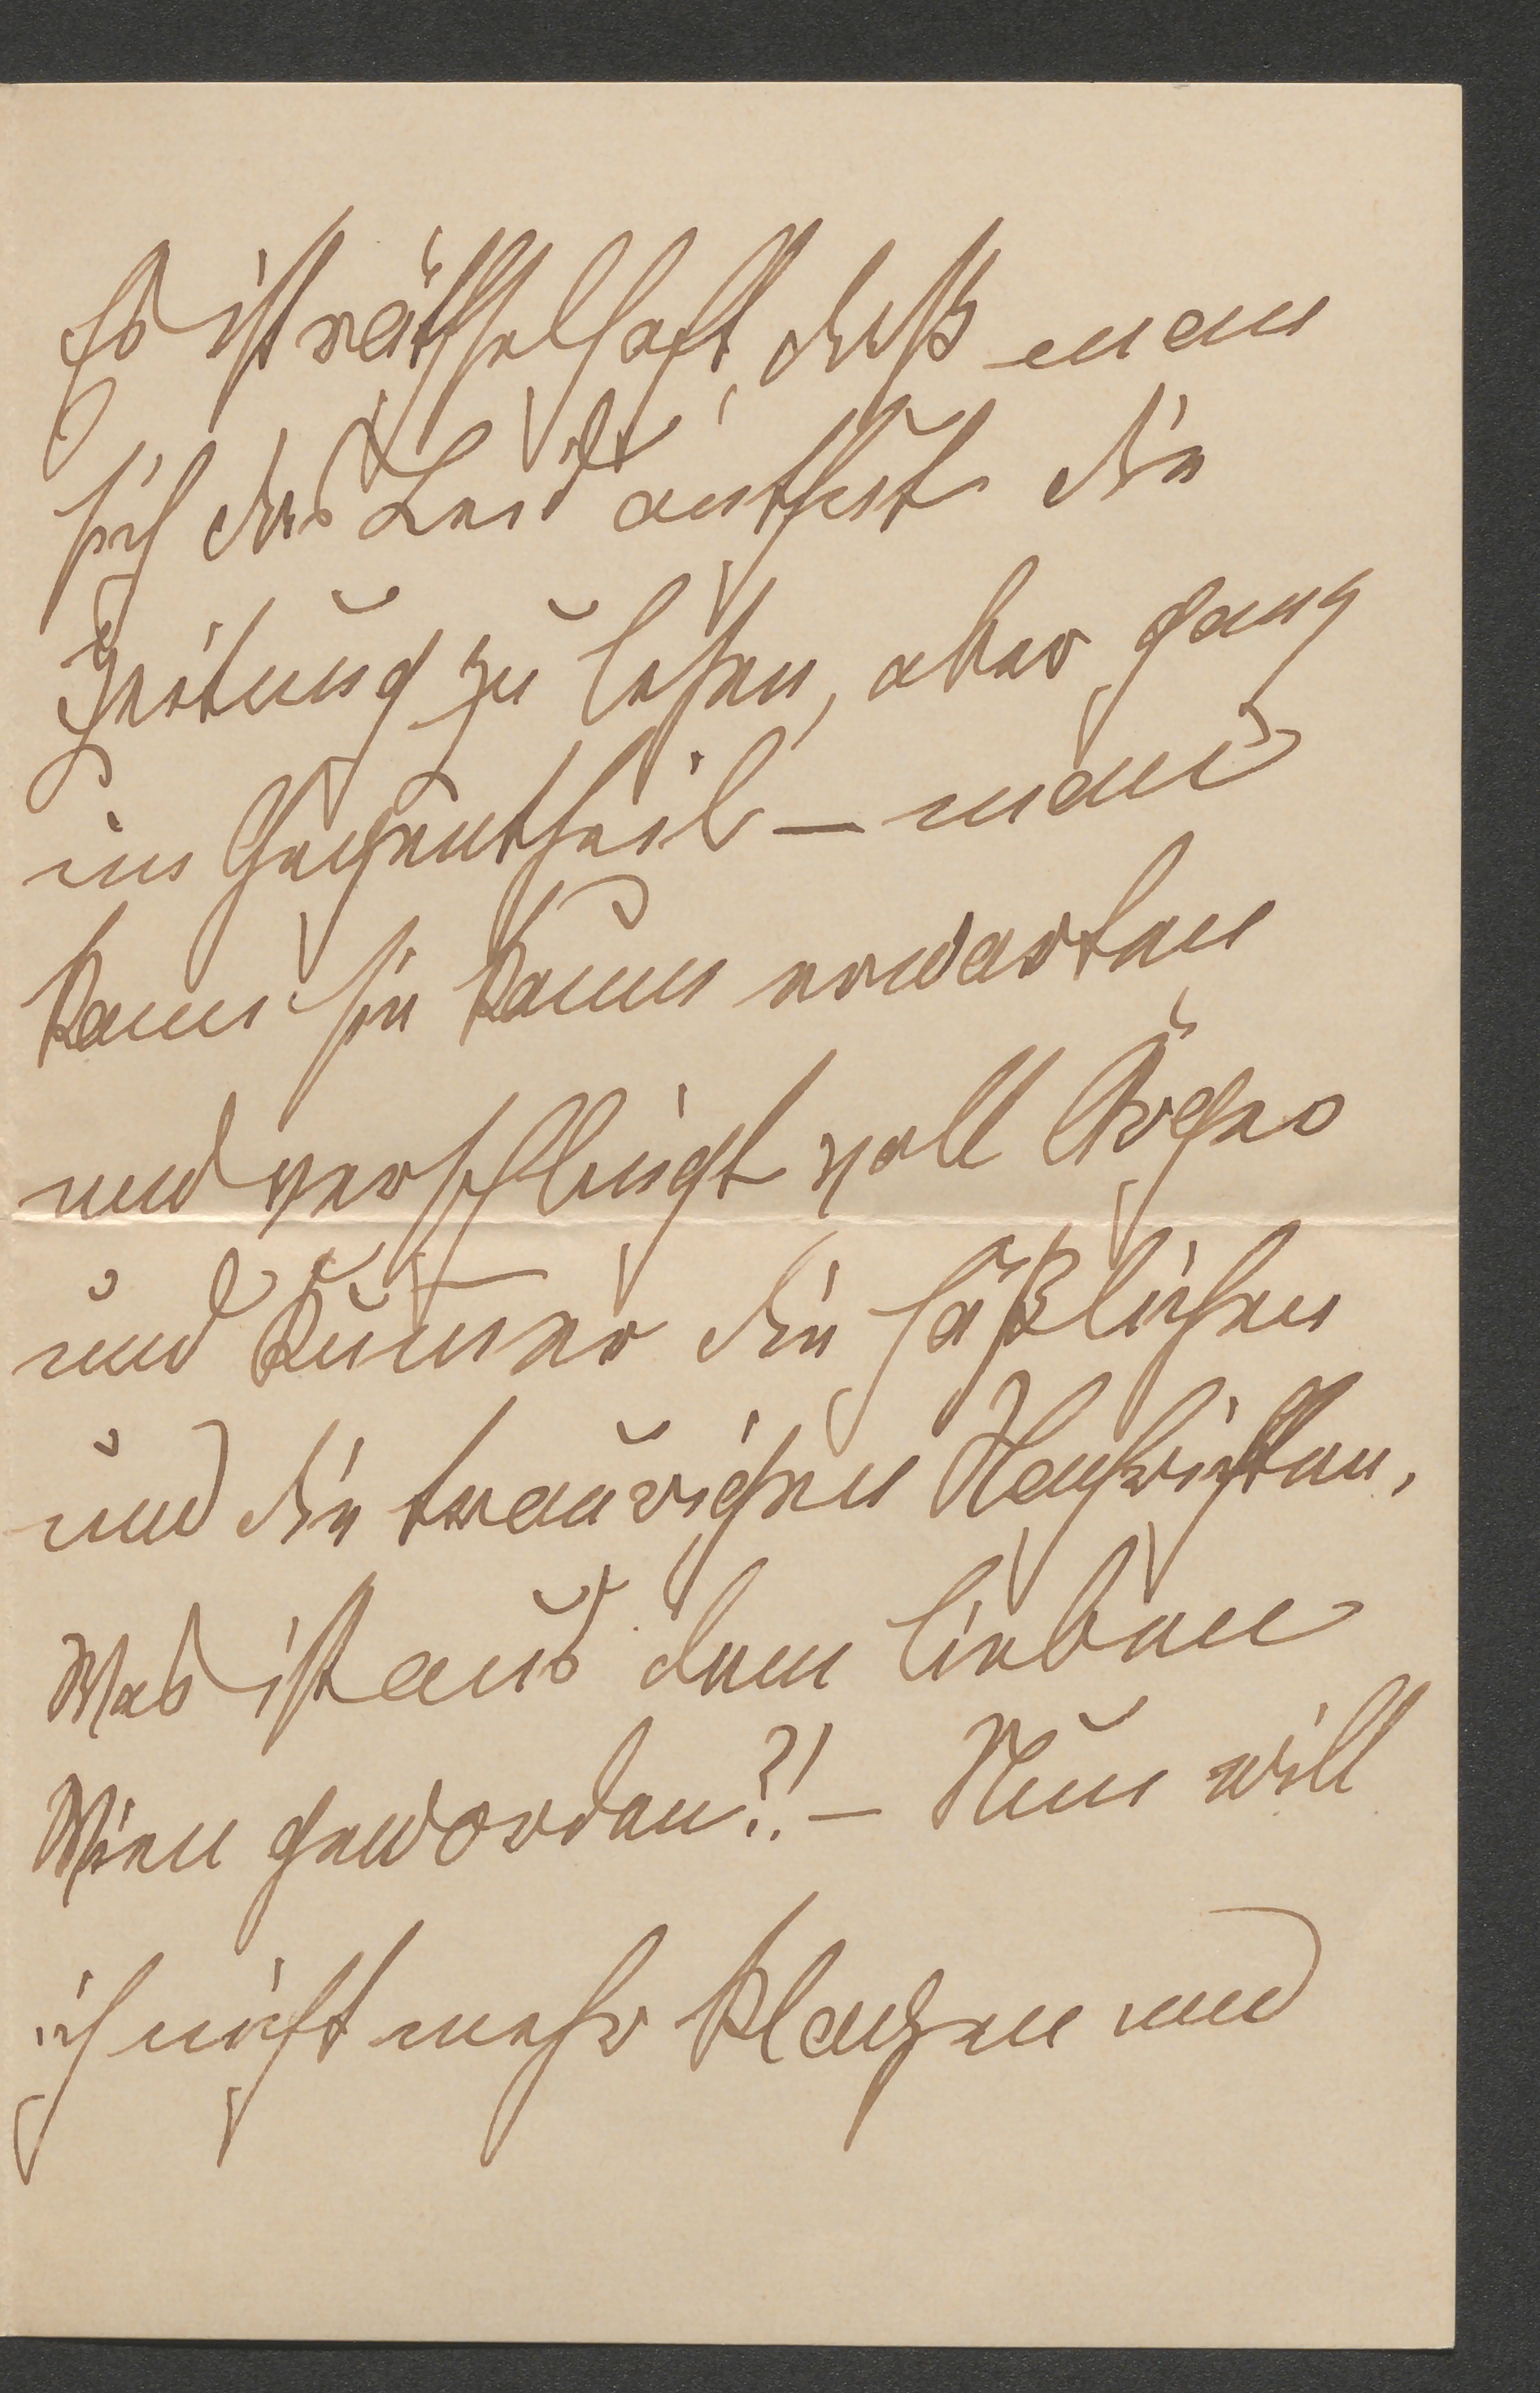 Es ist räthselhaft, daß man
sich das Leid anthut die
Zeitung zu lesen, aber ganz
im Gegentheil – man
kann sie kaum erwarten
und verschlingt voll Ärger
und Kum̅er die häßlichen
und die traurigen Nachrichten.
Was ist aus dem lieben
Wien geworden?! – Nun will
ich nicht mehr klagen und